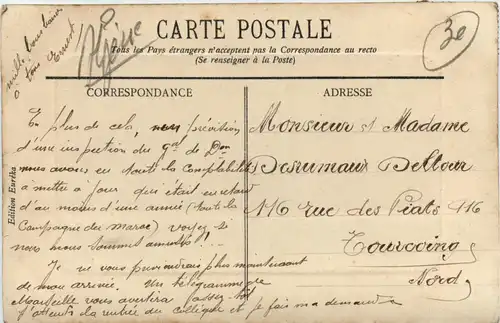 mille bons baisers
à tous Ernest
CARTE POSTALE
Tous les Pays étrangers n'acceptent pas la Correspondance au recto
(Se renseigner à la Poste)
CORRESPONDANCE
En plus de cela, prévision
d'une inspection du Gal de Don
nous avons eu toute la comptabilité
à mettre à jour qui était en retard
d'au moins d'une année (toute la
Campagne du Maroc) voyez si
nous nous sommes amusés !...
Je ne vous préviendrais plus maintenant
de mon arrivée. Un télégramme de
Marseille vous avertira assez tôt
J'attends la rentrée du collègue et je fais ma demande
ADRESSE
Monsieur et Madame
Desrumaux Deltour
116 rue des Piats 116
Tourcoing
Nord
Edition Eurêka